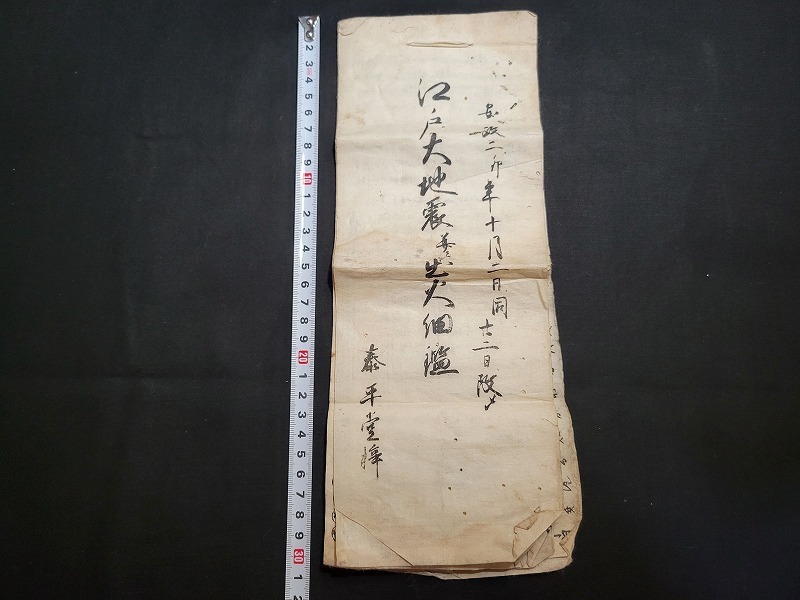 安政二卯年十月二日同十二日改
江戸大地震並出火細鑑
泰平堂梓
2
3
4
5
6
7
8
9
10
1
2
3
4
5
6
7
8
9
20
1
2
3
4
5
6
7
8
9
30
1